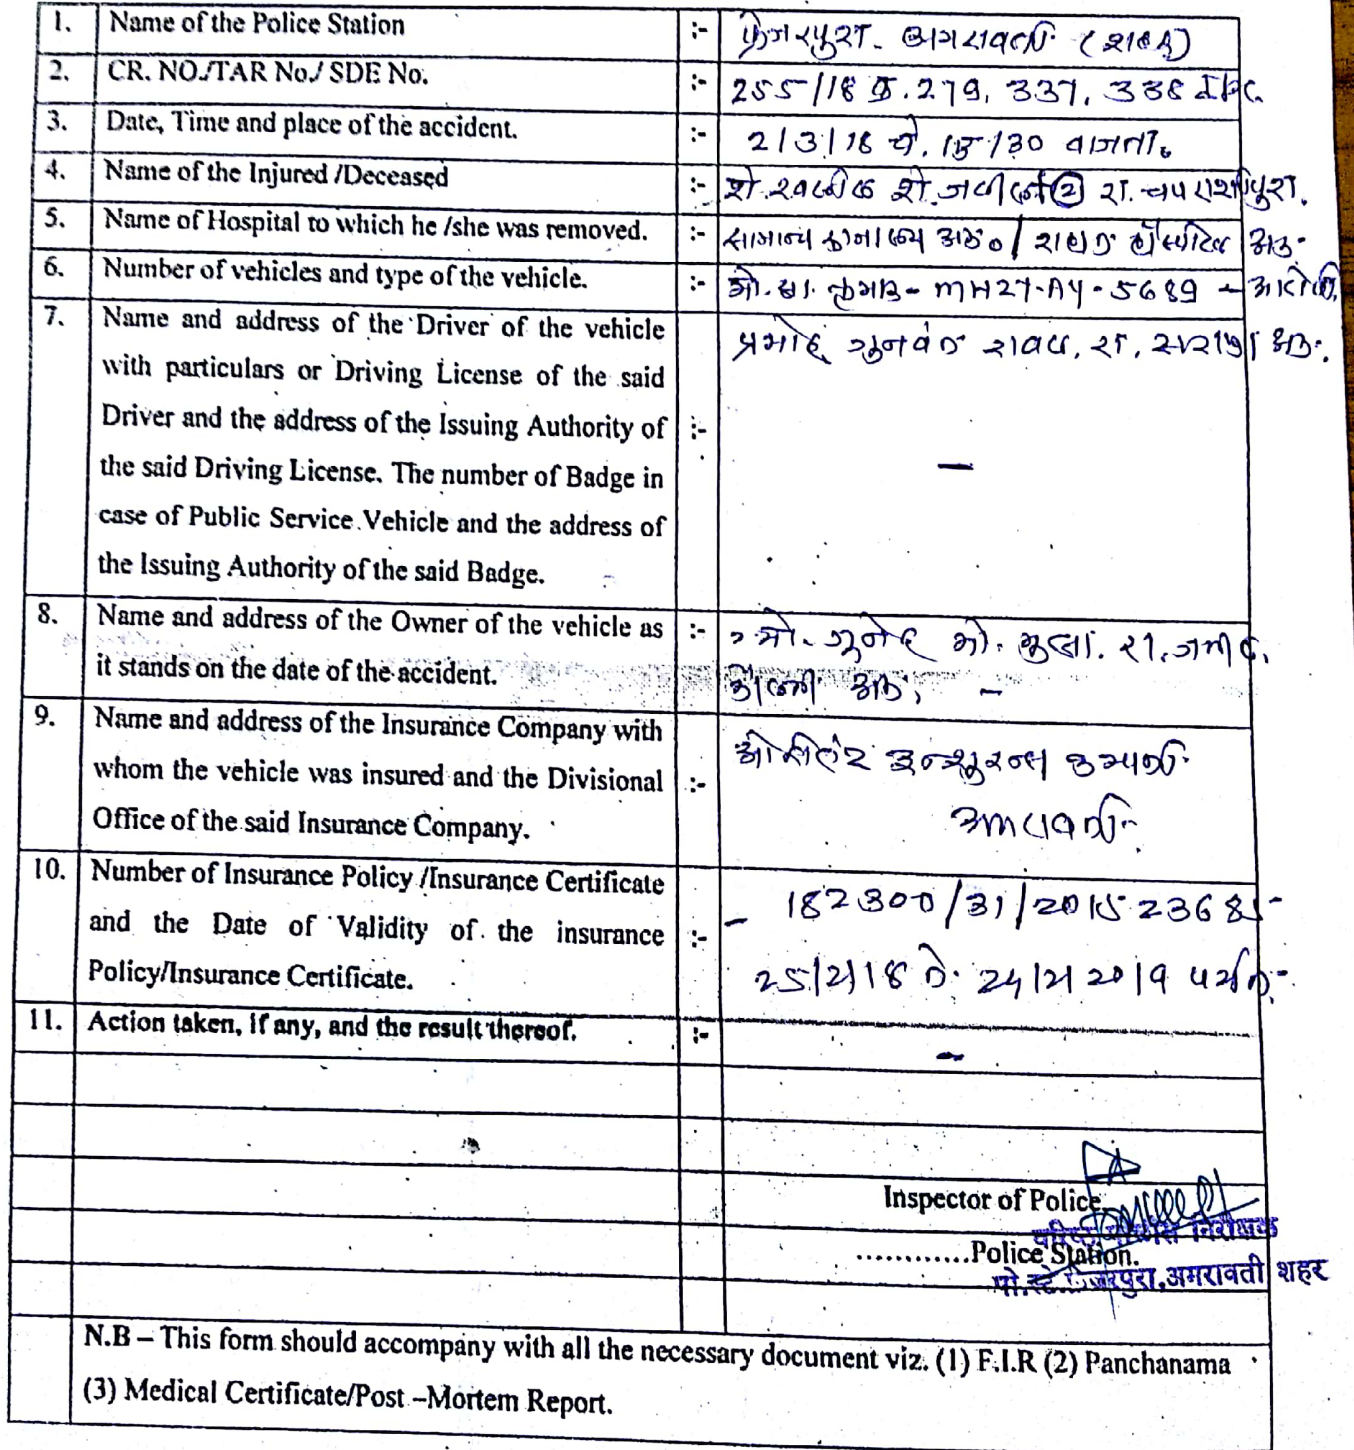 1. Name of the Police Station :- फ्रेजरपुरा. अमरावती (शहर)
2. CR. NO./TAR No./ SDE No. :- 255/18 क. 279, 337, 338 IPC.
3. Date, Time and place of the accident. :- 2/3/18 चे. /30 वाजता.
4. Name of the Injured /Deceased :- शे. खलील शे. जलील (2) रा. चपराशीपुरा.
5. Name of Hospital to which he /she was removed. :- सामान्य रुग्णालय अम० / हॉस्पीटल अम.
6. Number of vehicles and type of the vehicle. :- मो. सा. क्रमांक - MH27-AY-5689 -
7. Name and address of the Driver of the vehicle
प्रमोद गुनवंत रा. अम.
with particulars or Driving License of the said
Driver and the address of the Issuing Authority of :-
the said Driving License. The number of Badge in —
case of Public Service Vehicle and the address of
the Issuing Authority of the said Badge.
8. Name and address of the Owner of the vehicle as :- मो. मो. रा.
it stands on the date of the accident. अम. –
9. Name and address of the Insurance Company with
ओरीएंटल इन्शुरन्स कंपनी
whom the vehicle was insured and the Divisional :-
Office of the said Insurance Company. अमरावती.
10. Number of Insurance Policy /Insurance Certificate
- 182300/31/2015
and the Date of Validity of the insurance :-
Policy/Insurance Certificate. 25/2/18 ते. 24/2/2019 पर्यंत.
11. Action taken, if any, and the result thereof. :- –
Inspector of Police
वरिष्ठ पोलीस निरीक्षक
............Police Station.
पो.स्टे. फ्रेजरपुरा, अमरावती शहर
N.B – This form should accompany with all the necessary document viz. (1) F.I.R (2) Panchanama
(3) Medical Certificate/Post –Mortem Report.